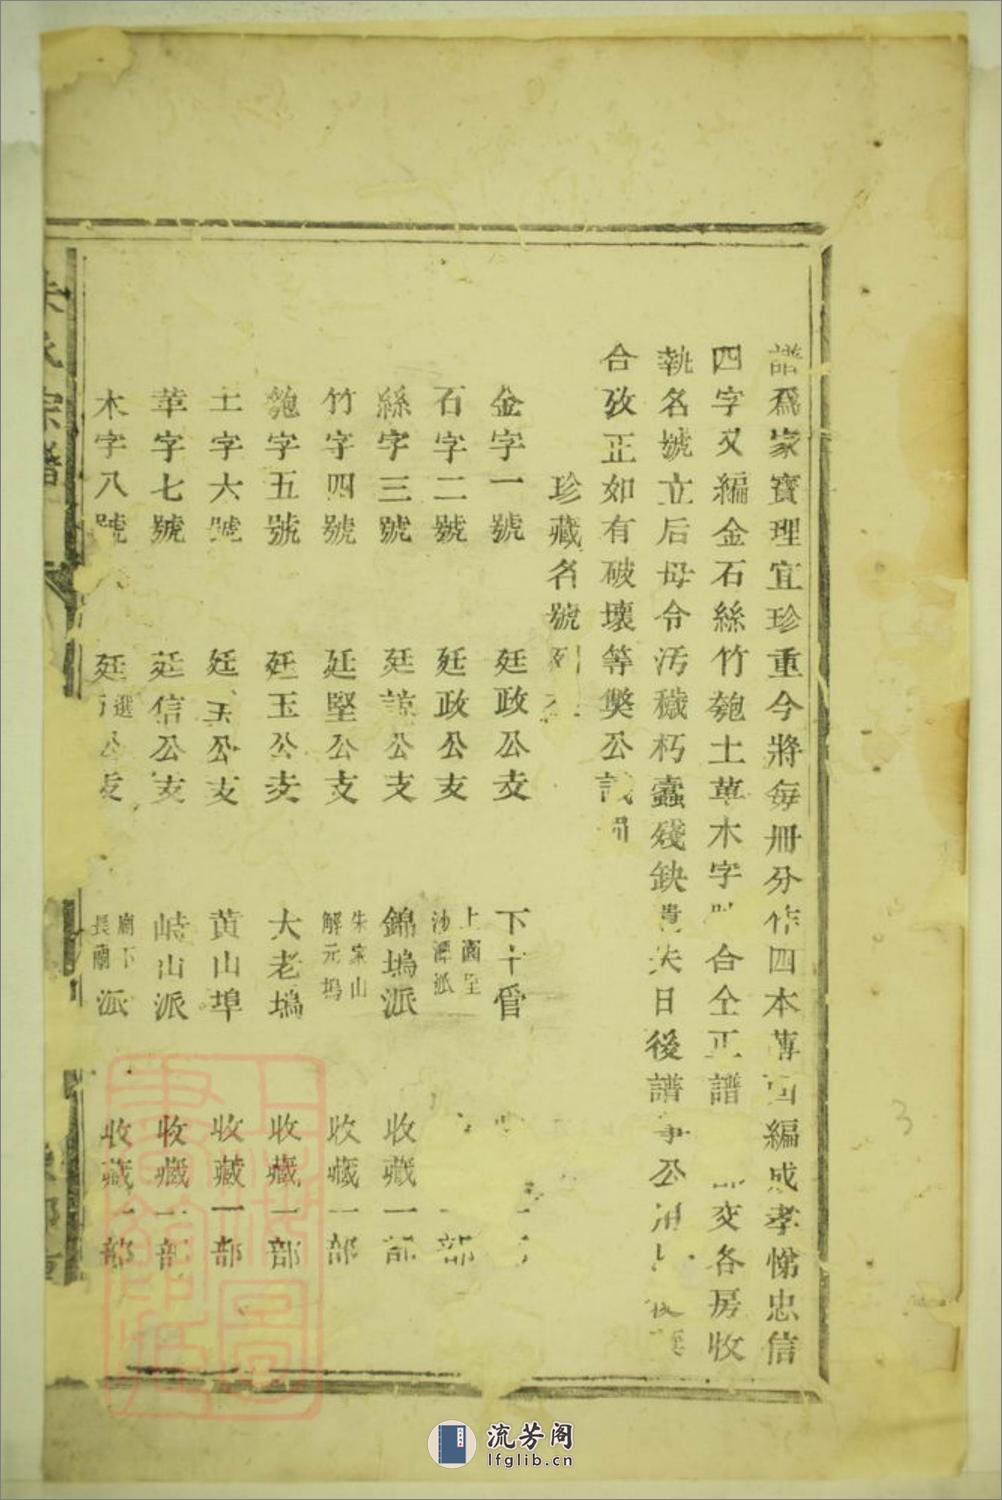 譜爲家寶理宜珍重今將每冊分作四本薄面編成孝悌忠信
四字又編金石絲竹匏土革木字 合仝正譜 交各房收
執名號立后毋令汚穢朽蠹殘缺 失日後譜 公
合攷正如有破壞等獘公議
珍藏名號列
金字一號 廷政公支 下 一
石字二號 廷政公支 上園 沙潭派 一部
絲字三號 廷諒公支 錦塢派 收藏一部
竹字四號 廷堅公支 朱家山 解元塢 收藏一部
匏字五號 廷玉公支 大老塢 收藏一部
土字六號 廷玉公支 黄山埠 收藏一部
革字七號 廷信公支 岐山派 收藏一部
木字八號 廷選 公支 廟下 長蘭派 收藏一部
氏宗譜
上海圖書館藏
流芳阁
lfglib.cn
3